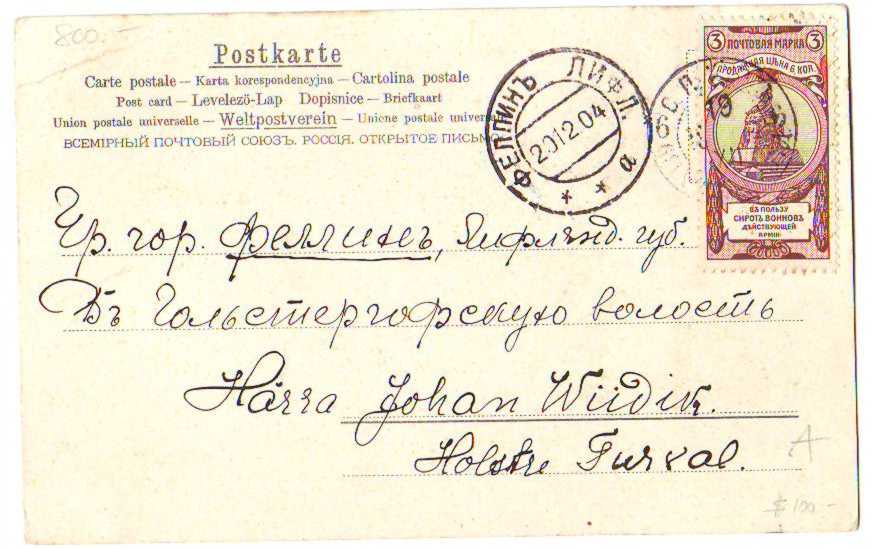 800.-
Postkarte
Carte postale — Karta korespondencyjna — Cartolina postale
Post card — Levelezö-Lap Dopisnice — Briefkaart
Union postale universelle — Weltpostverein — Unione postale universa
ВСЕМІРНЫЙ ПОЧТОВЫЙ СОЮЗЪ. РОССІЯ. ОТКРЫТОЕ ПИСЬМО
ФЕЛЛИНЪ ЛИФЛ.
20 12 04
* * а
3 ПОЧТОВАЯ МАРКА 3
ПРОДАЖНАЯ ЦѢНА 6 КОП.
ВЪ ПОЛЬЗУ
СИРОТЪ ВОИНОВЪ
ДѢЙСТВУЮЩЕЙ
АРМІИ
Чр. гор. Феллинъ, Лифлянд. губ.
Въ Гольстергофскую волость
Härra Johan Wiidik.
Holstre
A
$ 100 -